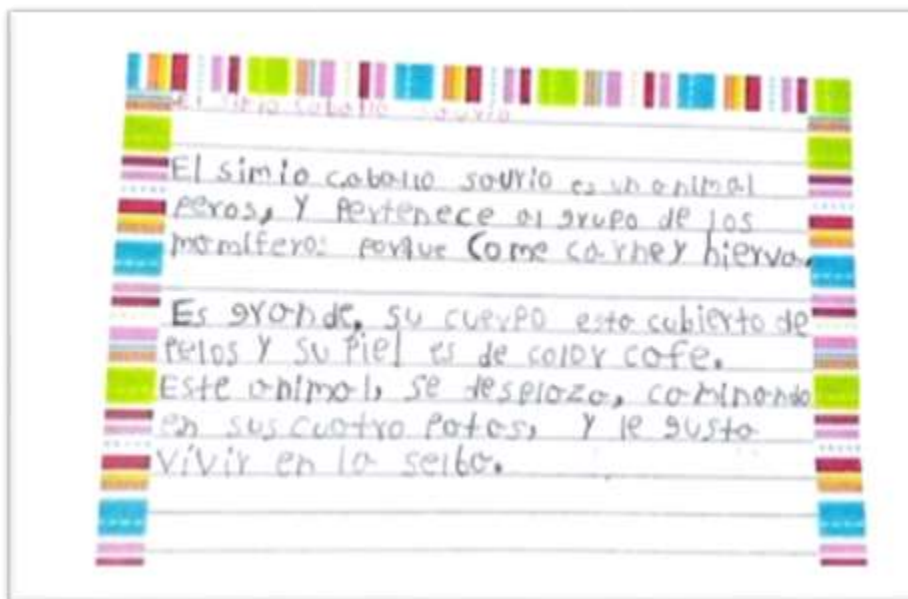 El simio caballo saurio
El simio caballo saurio es un animal
peros, y pertenece al grupo de los
mamífero: porque come carne y hierva.
Es grande, su cuerpo esta cubierto de
pelos y su piel es de color cafe.
Este animal, se desplaza, caminando
en sus cuatro patas, y le gusta
vivir en la selba.